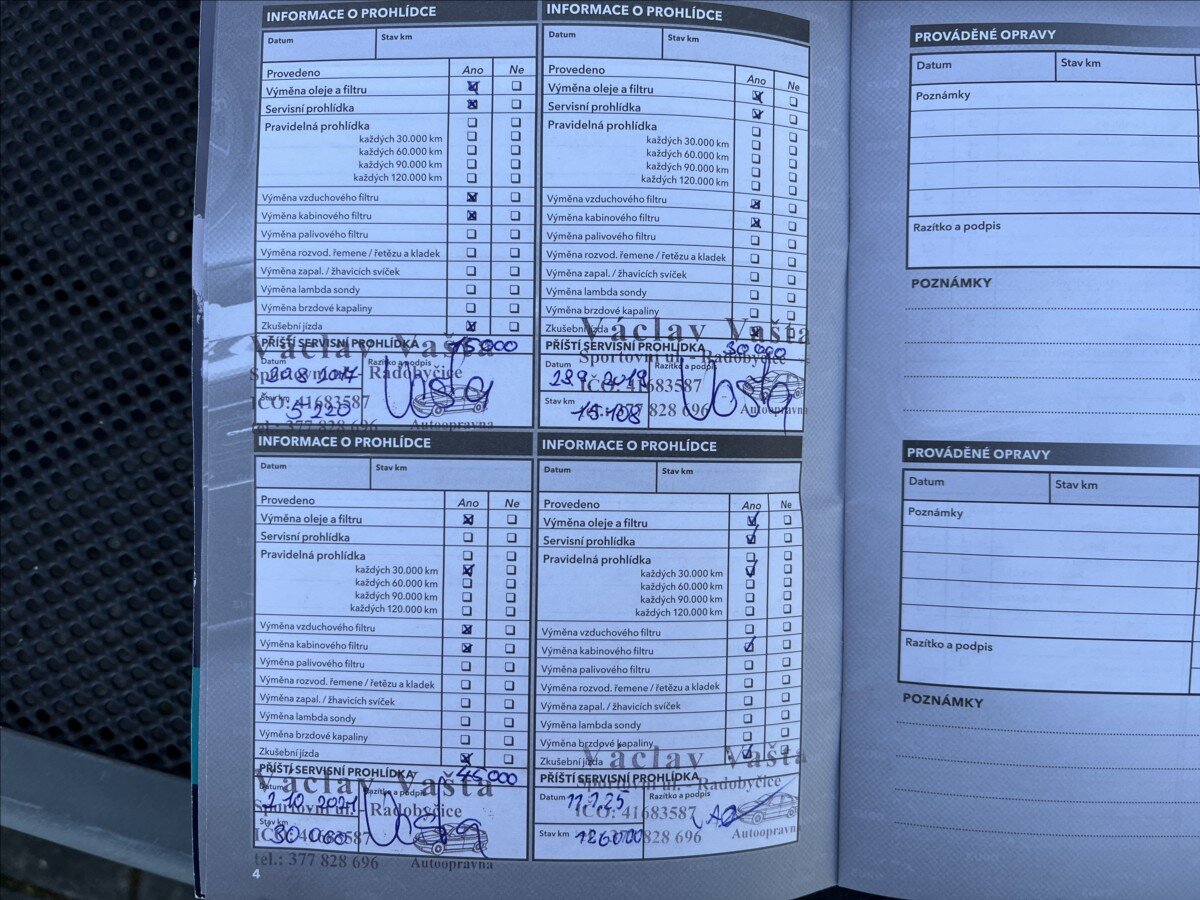 INFORMACE O PROHLÍDCE
Datum Stav km
Provedeno Ano Ne
Výměna oleje a filtru
Servisní prohlídka
Pravidelná prohlídka
každých 30.000 km
každých 60.000 km
každých 90.000 km
každých 120.000 km
Výměna vzduchového filtru
Výměna kabinového filtru
Výměna palivového filtru
Výměna rozvod. řemene / řetězu a kladek
Výměna zapal. / žhavicích svíček
Výměna lambda sondy
Výměna brzdové kapaliny
Zkušební jízda
PŘÍŠTÍ SERVISNÍ PROHLÍDKA 15000
Václav Vašta
Datum Razítko a podpis
Sportovní ul. - Radobyčice
IČO: 41683587
Stav km 5220
tel.: 377 828 696 Autoopravna
INFORMACE O PROHLÍDCE
Datum Stav km
Provedeno Ano Ne
Výměna oleje a filtru
Servisní prohlídka
Pravidelná prohlídka
každých 30.000 km
každých 60.000 km
každých 90.000 km
každých 120.000 km
Výměna vzduchového filtru
Výměna kabinového filtru
Výměna palivového filtru
Výměna rozvod. řemene / řetězu a kladek
Výměna zapal. / žhavicích svíček
Výměna lambda sondy
Výměna brzdové kapaliny
Zkušební jízda
Václav Vašta
PŘÍŠTÍ SERVISNÍ PROHLÍDKA 30000
Sportovní ul. - Radobyčice
Datum Razítko a podpis
IČO: 41683587
Stav km 15108
377 828 696 Autoopravna
INFORMACE O PROHLÍDCE
Datum Stav km
Provedeno Ano Ne
Výměna oleje a filtru
Servisní prohlídka
Pravidelná prohlídka
každých 30.000 km
každých 60.000 km
každých 90.000 km
každých 120.000 km
Výměna vzduchového filtru
Výměna kabinového filtru
Výměna palivového filtru
Výměna rozvod. řemene / řetězu a kladek
Výměna zapal. / žhavicích svíček
Výměna lambda sondy
Výměna brzdové kapaliny
Zkušební jízda
PŘÍŠTÍ SERVISNÍ PROHLÍDKA 45000
Václav Vašta
Datum Razítko a podpis
Sportovní ul. - Radobyčice
Stav km 30060
IČO: 41683587
tel.: 377 828 696 Autoopravna
4
INFORMACE O PROHLÍDCE
Datum Stav km
Provedeno Ano Ne
Výměna oleje a filtru
Servisní prohlídka
Pravidelná prohlídka
každých 30.000 km
každých 60.000 km
každých 90.000 km
každých 120.000 km
Výměna vzduchového filtru
Výměna kabinového filtru
Výměna palivového filtru
Výměna rozvod. řemene / řetězu a kladek
Výměna zapal. / žhavicích svíček
Výměna lambda sondy
Výměna brzdové kapaliny
Zkušební jízda
Václav Vašta
PŘÍŠTÍ SERVISNÍ PROHLÍDKA
Sportovní ul. - Radobyčice
Datum Razítko a podpis
IČO: 41683587
Stav km 126000
377 828 696 Autoopravna
PROVÁDĚNÉ OPRAVY
Datum Stav km
Poznámky
Razítko a podpis
POZNÁMKY
PROVÁDĚNÉ OPRAVY
Datum Stav km
Poznámky
Razítko a podpis
POZNÁMKY